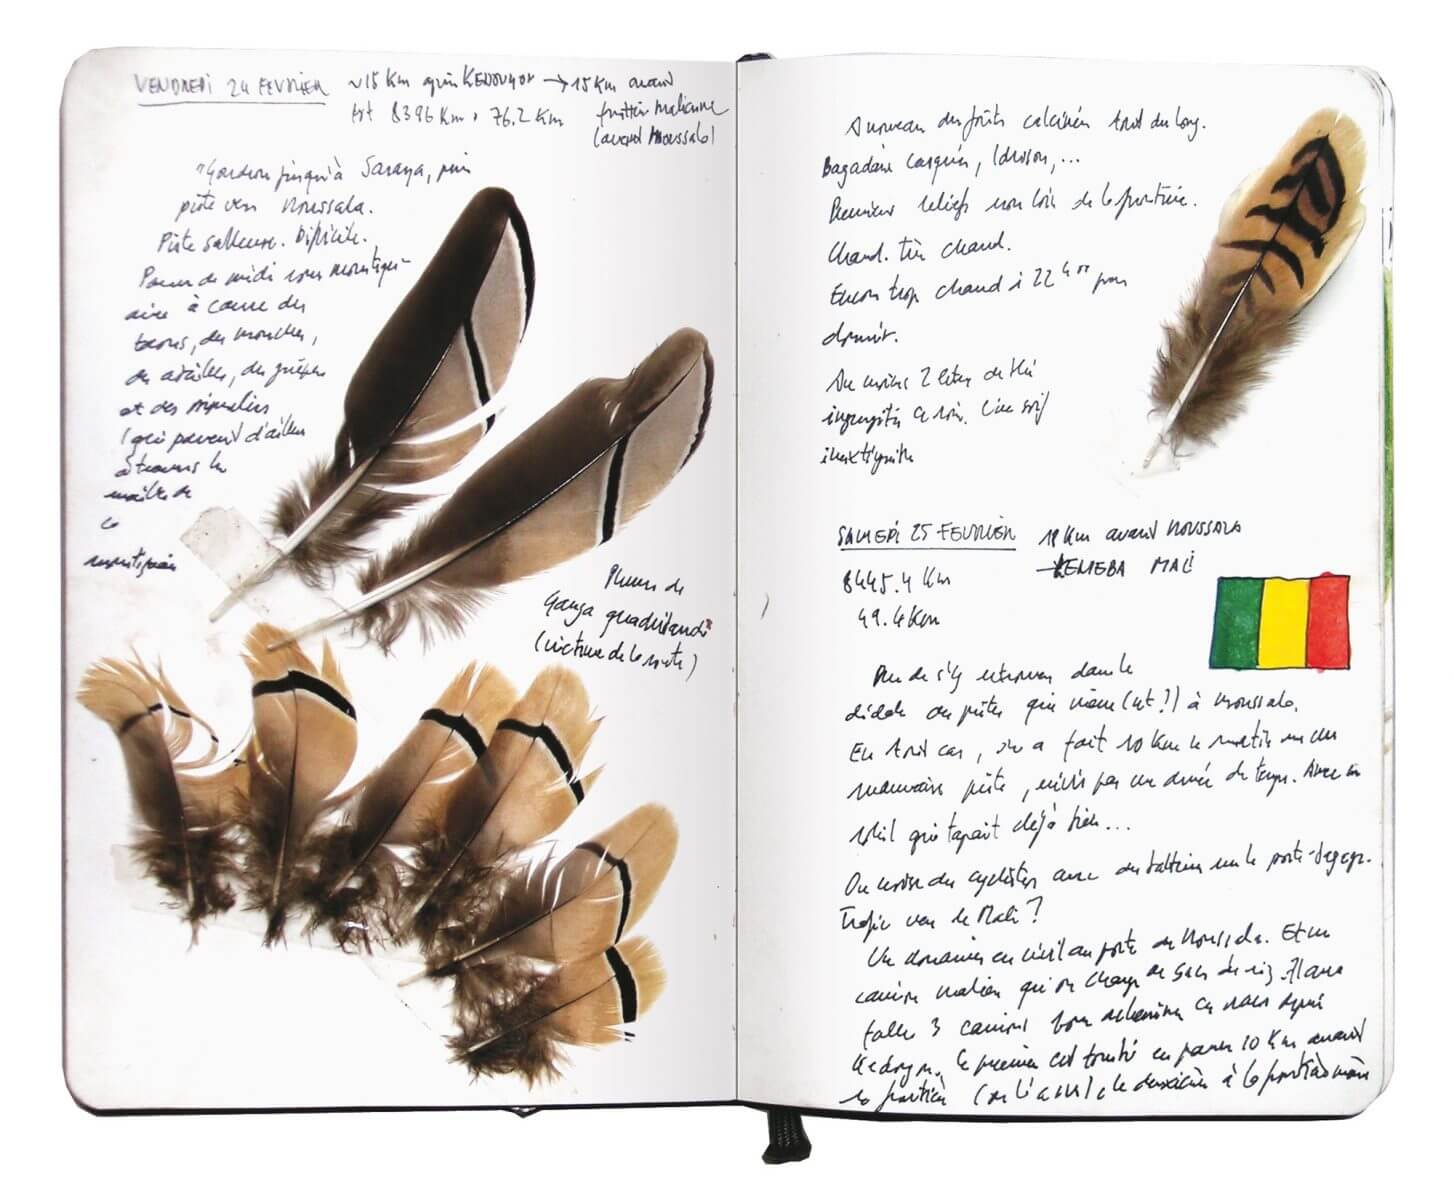 VENDREDI 24 FEVRIER ~15 Km après KEDOUGOU → 15 Km avant
tot 8396 Km • 76.2 Km frontière malienne
(avant Moussala)
Goudron jusqu'à Saraya, puis
piste vers Moussala.
Piste sableuse. Difficile.
Pause de midi sous mousti-
aire à cause des
taons, des mouches,
des abeilles, des guêpes
et des
(qui peuvent d'ailleurs
à travers les
mailles de
la
moustiquaire
Plumes de
Ganga quadribande
(victime de la route)
A nouveau des forêts calcinées tout du long.
Bagadais casqués, Idrisson, ...
Premiers reliefs non loin de la frontière.
Chaud. Très chaud.
Encore trop chaud à 22h00 pour
dormir.
Au moins 2 litres de thé
ingurgités ce soir. Une soif
inextinguible
SAMEDI 25 FEVRIER 18 Km avant MOUSSALA
→ KENIEBA MALI
8445.4 Km
49.4 Km
Pas de s'y retrouver dans le
dédale de pistes qui mène (nt ?) à Moussala.
En tout cas, on a fait 10 Km le matin sur une
mauvaise piste, suivis par une armée de taons. Avec un
soleil qui tapait déjà bien...
On croise des cyclistes avec des sur le porte-bagage.
Trafic vers le Mali ?
Un douanier en civil au poste de Moussala. Et un
camion malien qu'on charge de sacs de riz. Il aura
fallu 3 camions pour acheminer ce depuis
Kedougou. Le premier est tombé en panne 10 Km avant
la frontière (on l'a vu), le deuxième à la frontière